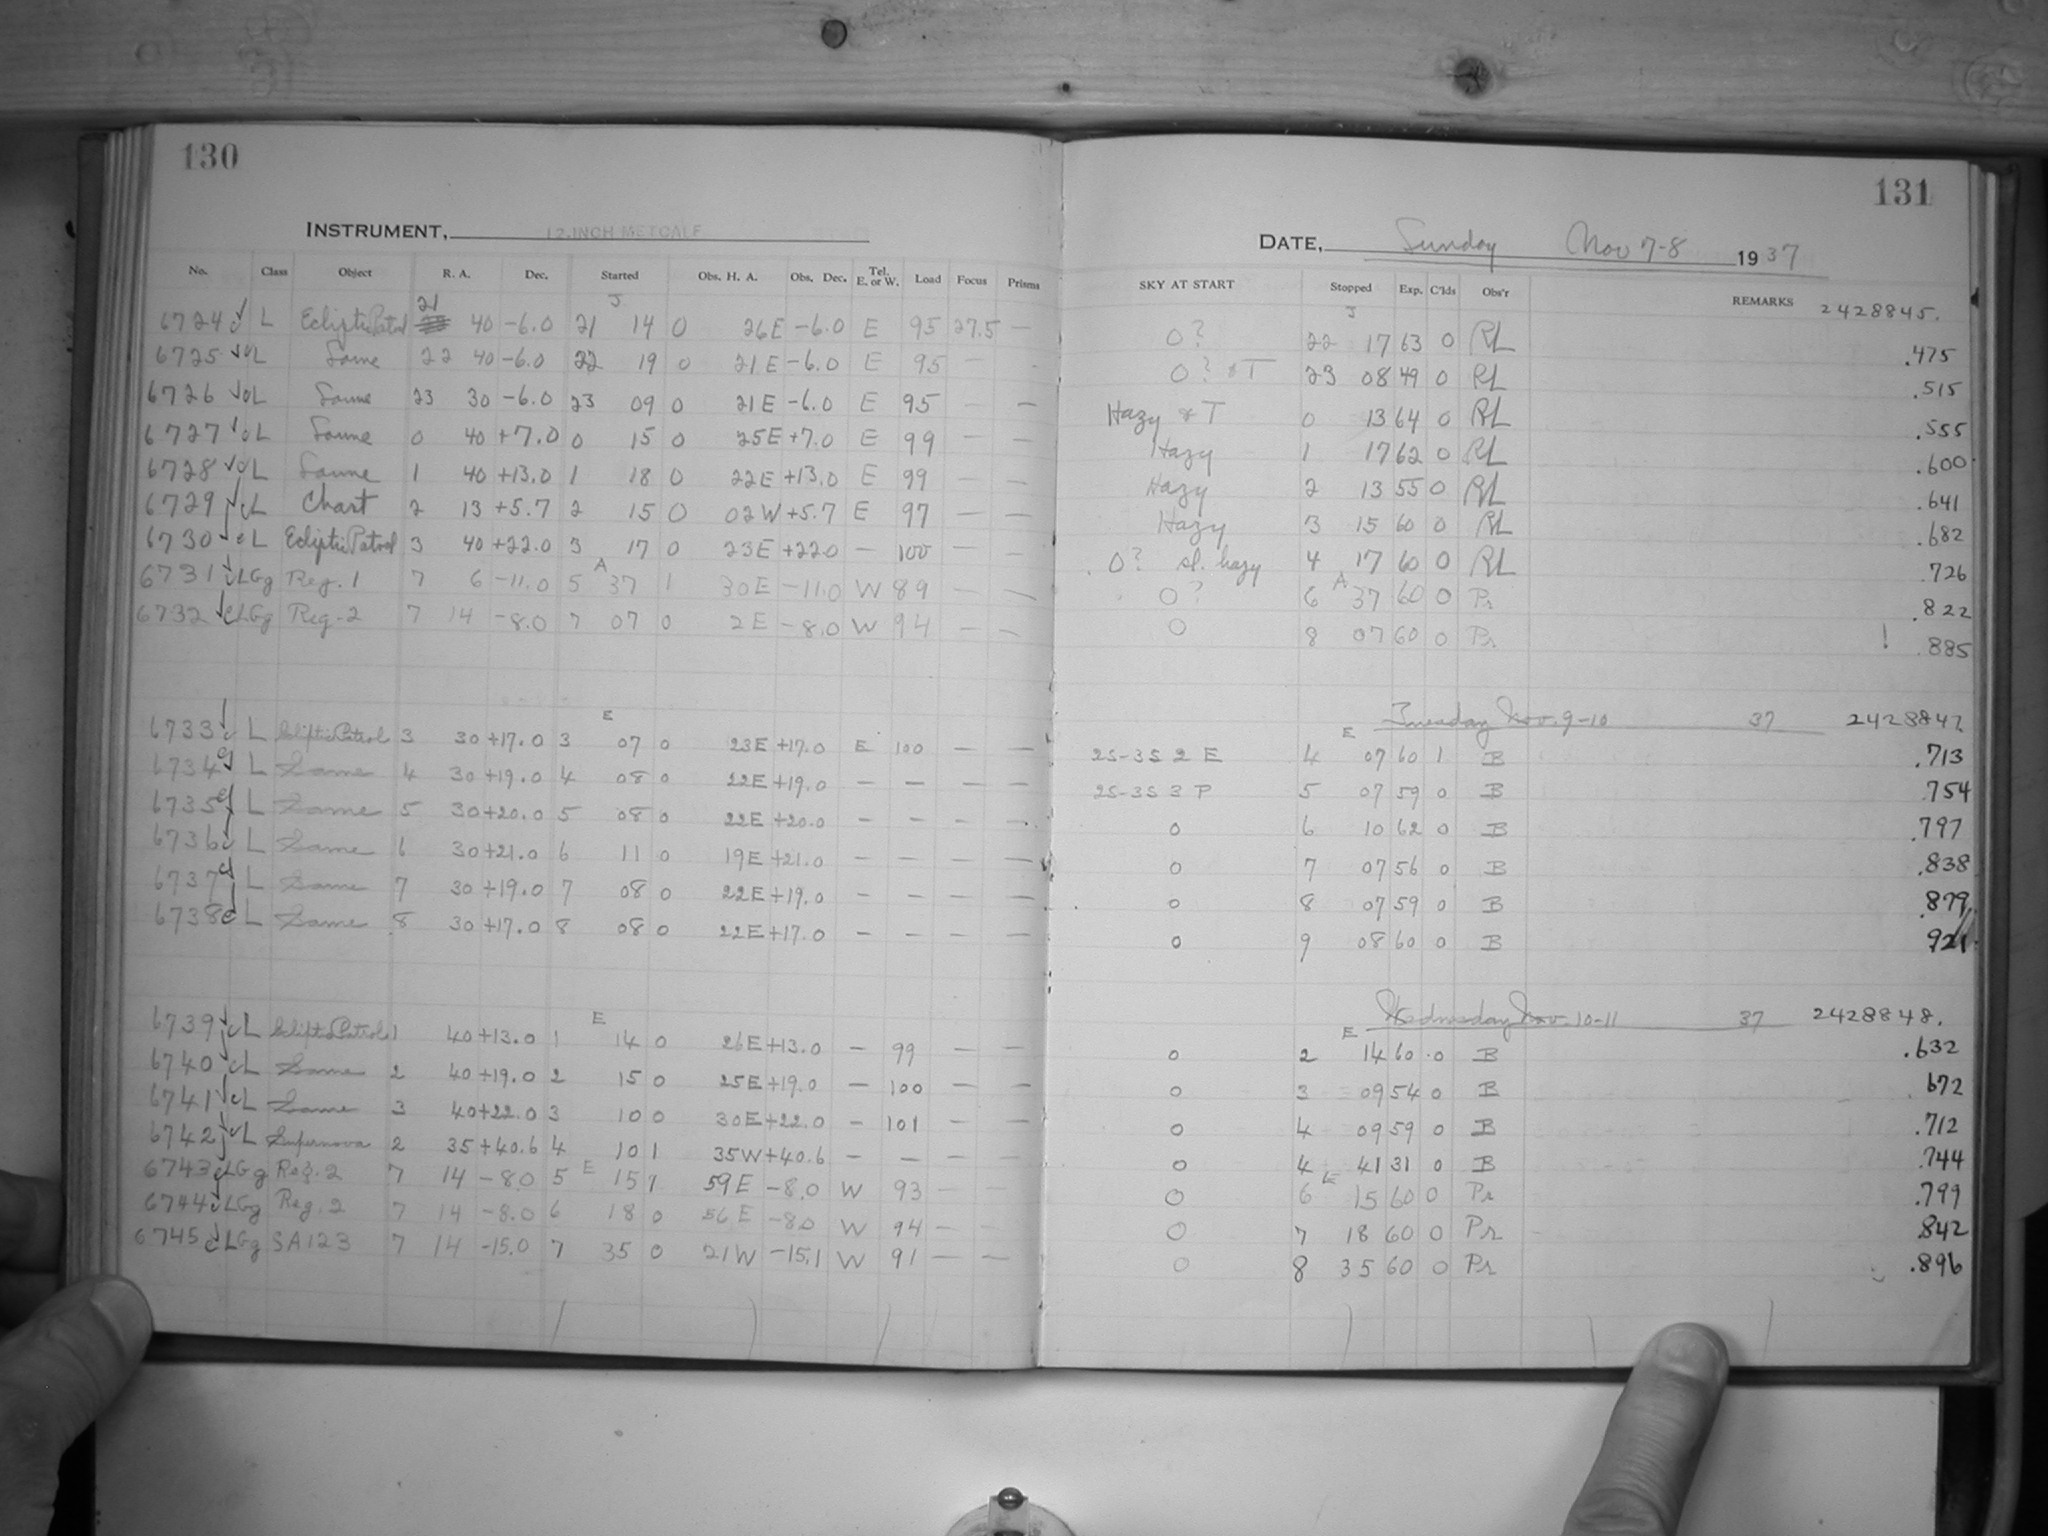 130
INSTRUMENT, 12-INCH METCALF
No. Class Object R. A. Dec. Started Obs. H. A. Obs. Dec. Tel. E. or W. Load Focus Prisms
21 J
6724 L Ecliptic Patrol 40 -6.0 21 14 0 26E -6.0 E 95 27.5 —
6725 L Same 22 40 -6.0 22 19 0 21E -6.0 E 95 —
6726 L Same 23 30 -6.0 23 09 0 21E -6.0 E 95 — —
6727 L Same 0 40 +7.0 0 15 0 25E +7.0 E 99 — —
6728 L Same 1 40 +13.0 1 18 0 22E +13.0 E 99 — —
6729 L Chart 2 13 +5.7 2 15 0 02W +5.7 E 97 — —
6730 L Ecliptic Patrol 3 40 +22.0 3 17 0 23E +22.0 — 100 — —
A
6731 LGg Reg. 1 7 6 -11.0 5 37 1 30E -11.0 W 89 — —
6732 LGg Reg. 2 7 14 -8.0 7 07 0 2E -8.0 W 94 — —
E
6733 L Ecliptic Patrol 3 30 +17.0 3 07 0 23E +17.0 E 100 — —
6734 L Same 4 30 +19.0 4 08 0 22E +19.0 — — — —
6735 L Same 5 30 +20.0 5 08 0 22E +20.0 — — — —
6736 L Same 6 30 +21.0 6 11 0 19E +21.0 — — — —
6737 L Same 7 30 +19.0 7 08 0 22E +19.0 — — — —
6738 L Same 8 30 +17.0 8 08 0 22E +17.0 — — — —
E
6739 L Ecliptic Patrol 1 40 +13.0 1 14 0 26E +13.0 — 99 — —
6740 L Same 2 40 +19.0 2 15 0 25E +19.0 — 100 — —
6741 L Same 3 40 +22.0 3 10 0 30E +22.0 — 101 — —
6742 L Supernova 2 35 +40.6 4 10 1 35W +40.6 — — — —
6743 LGg Reg. 2 7 14 -8.0 5 E 15 1 59E -8.0 W 93 — —
6744 LGg Reg. 2 7 14 -8.0 6 18 0 56E -8.0 W 94 — —
6745 LGg SA123 7 14 -15.0 7 35 0 21W -15.1 W 91 — —
131
DATE, Sunday Nov 7-8 1937
SKY AT START Stopped Exp. C'lds Obs'r REMARKS 2428845.
J
0? 22 17 63 0 RL .475
0? & T 23 08 49 0 RL .515
Hazy & T 0 13 64 0 RL .555
Hazy 1 17 62 0 RL .600
Hazy 2 13 55 0 RL .641
Hazy 3 15 60 0 RL .682
0? sl. hazy 4 17 60 0 RL .726
A
0? 6 37 60 0 Pr .822
0 8 07 60 0 Pr .885
Tuesday Nov. 9-10 37 2428847.
E
2S-3S 2 E 4 07 60 1 B .713
2S-3S 3 P 5 07 59 0 B .754
0 6 10 62 0 B .797
0 7 07 56 0 B .838
0 8 07 59 0 B .879
0 9 08 60 0 B .921
Wednesday Nov. 10-11 37 2428848.
E
0 2 14 60 0 B .632
0 3 09 54 0 B .672
0 4 09 59 0 B .712
0 4 41 31 0 B .744
E
0 6 15 60 0 Pr .799
0 7 18 60 0 Pr .842
0 8 35 60 0 Pr .896